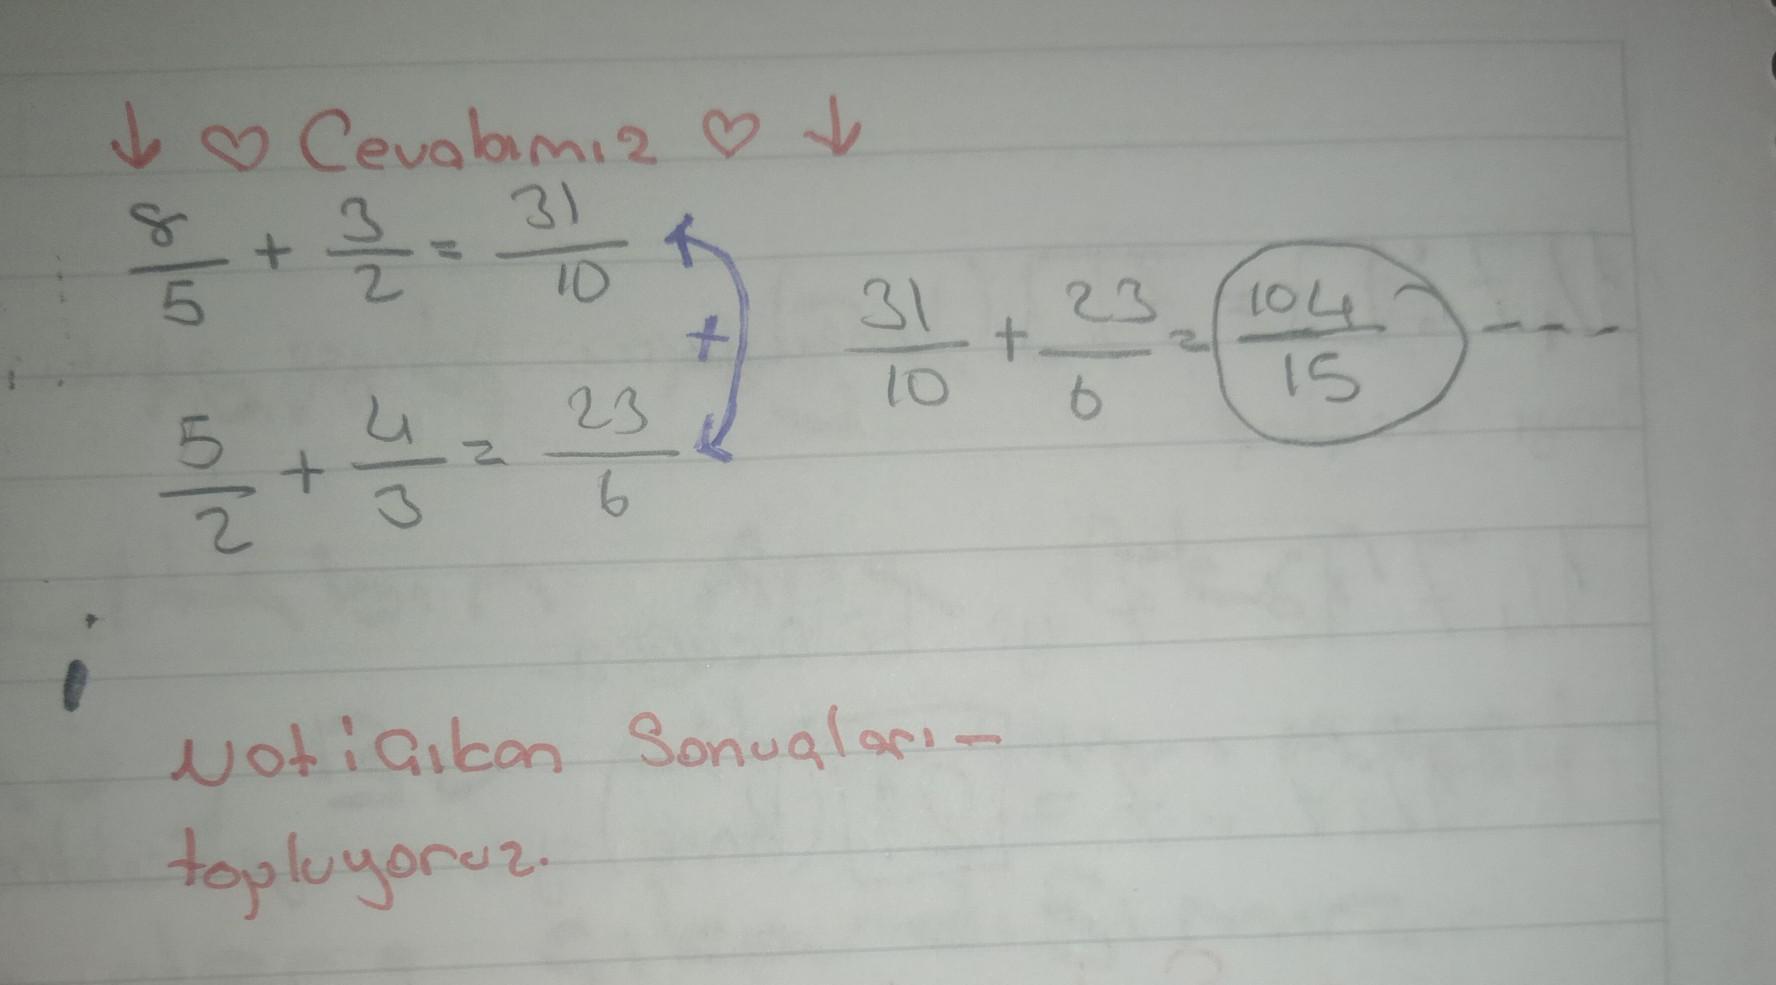 ↓ ♡ Cevabımız ♡ ↓
8/5 + 3/2 = 31/10
+
5/2 + 4/3 = 23/6
31/10 + 23/6 = 104/15 ---
Not: Çıkan Sonuçları-
topluyoruz.